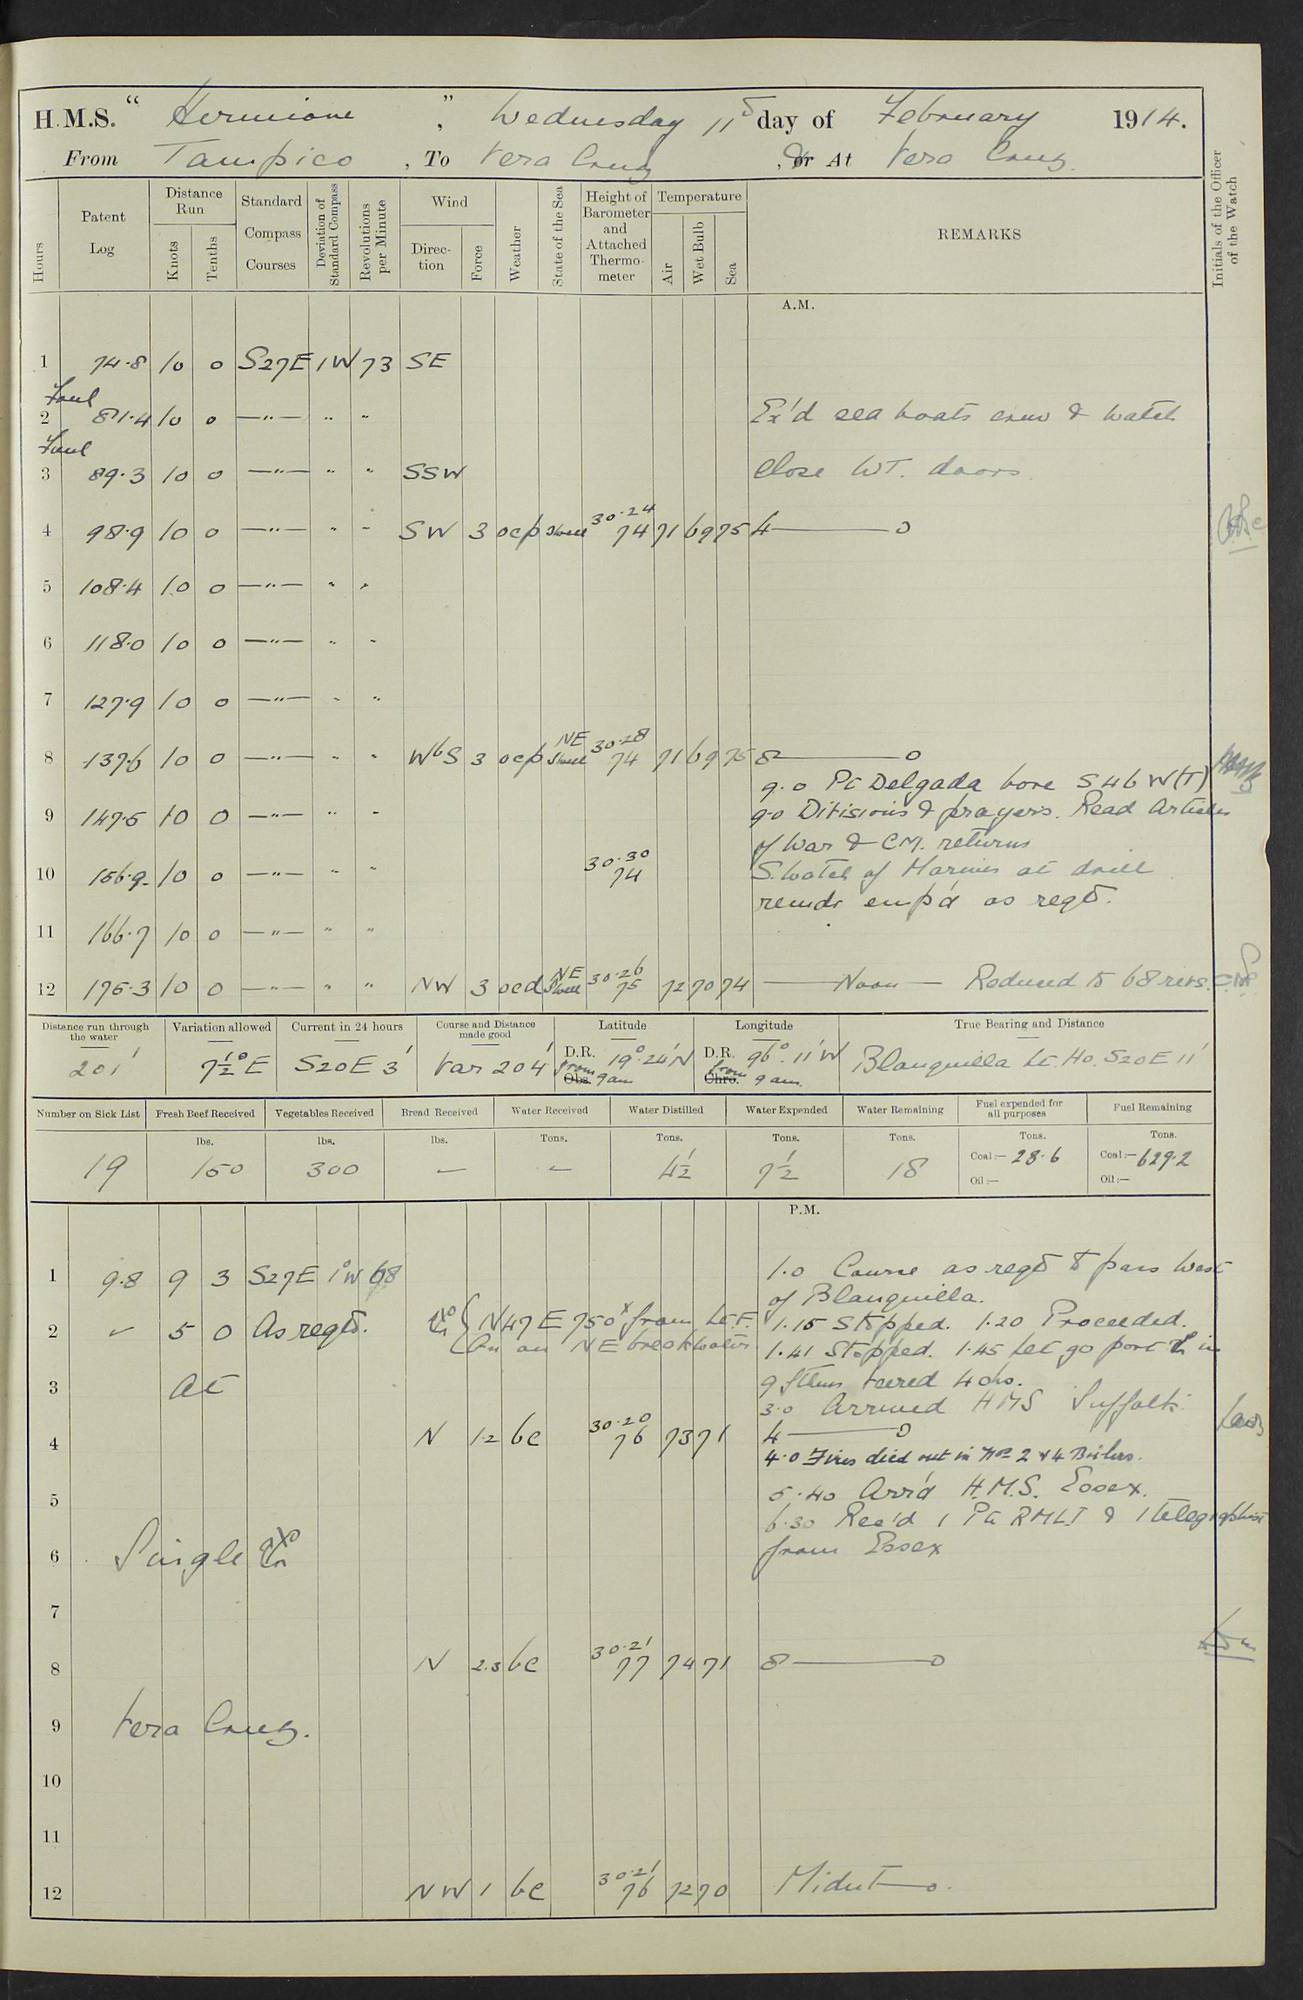 H.M.S. "Hermione", Wednesday 11th day of February 1914.
From Tampico, To Vera Cruz, or At Vera Cruz.
Hours
Patent Log
Distance Run
Knots
Tenths
Standard Compass Courses
Deviation of Standard Compass
Revolutions per Minute
Wind
Direction
Force
Weather
State of the Sea
Height of Barometer and Attached Thermometer
Temperature
Air
Wet Bulb
Sea
REMARKS
Initials of the Officer of the Watch
A.M.
1 74.8 10 0 S27E 1W 73 SE
Foul
2 81.4 10 0 —"— " " Ex'd sea boats crew & watch
Foul
3 89.3 10 0 —"— " " SSW Close WT. doors
4 98.9 10 0 —"— " " SW 3 ocp Swell 30.24 74 71 69 75 4———0
5 108.4 10 0 —"— " "
6 118.0 10 0 —"— " "
7 127.9 10 0 —"— " "
8 137.6 10 0 —"— " " WbS 3 ocp NE Swell 30.28 74 71 69 75 8———0
9.0 Pt Delgada bore S46W(T)
9 147.5 10 0 —"— " " 9.0 Divisions & prayers. Read Articles
of War & CM. returns
10 156.9 10 0 —"— " " 30.30 74 S. watch of Marines at drill
remdr emp'd as reqd.
11 166.7 10 0 —"— " "
12 175.3 10 0 —"— " " NW 3 ocd NE Swell 30.26 75 72 70 74 ——Noon— Reduced to 68 revs.
Distance run through the water
201'
Variation allowed
7½° E
Current in 24 hours
S20E 3'
Course and Distance made good
Var 204'
Latitude
D.R. 19°.24'N
Obs. from 9am
Longitude
D.R. 96°.11'W
Chro. from 9am.
True Bearing and Distance
Blanquilla Lt. Ho. S20E 11'
Number on Sick List
19
Fresh Beef Received
lbs.
150
Vegetables Received
lbs.
300
Bread Received
lbs.
—
Water Received
Tons.
—
Water Distilled
Tons.
4½
Water Expended
Tons.
7½
Water Remaining
Tons.
18
Fuel expended for all purposes
Tons.
Coal:— 28.6
Oil:—
Fuel Remaining
Tons.
Coal:— 629.2
Oil:—
P.M.
1 9.8 9 3 S27E 1°W 68 1.0 Course as reqd to pass West
of Blanquilla.
2 ✓ 5 0 As reqd. N47E 750x from Lt. F. 1.15 Stopped. 1.20 Proceeded.
on NE breakwater 1.41 Stopped. 1.45 Let go port in
3 At 9 fthms veered 4 shs.
3.0 Arrived HMS Suffolk.
4 N 1.2 bc 30.20 76 73 71 4———0
4.0 Fires died out in Nos 2 & 4 Boilers.
5 5.40 Arr'd H.M.S. Essex.
6.30 Rec'd 1 Pte RMLI & 1 telegraphist
6 Single from Essex
7
8 N 2.3 bc 30.21 77 74 71 8———0
9 Vera Cruz.
10
11
12 NW 1 bc 30.21 76 72 70 Midnt—0.